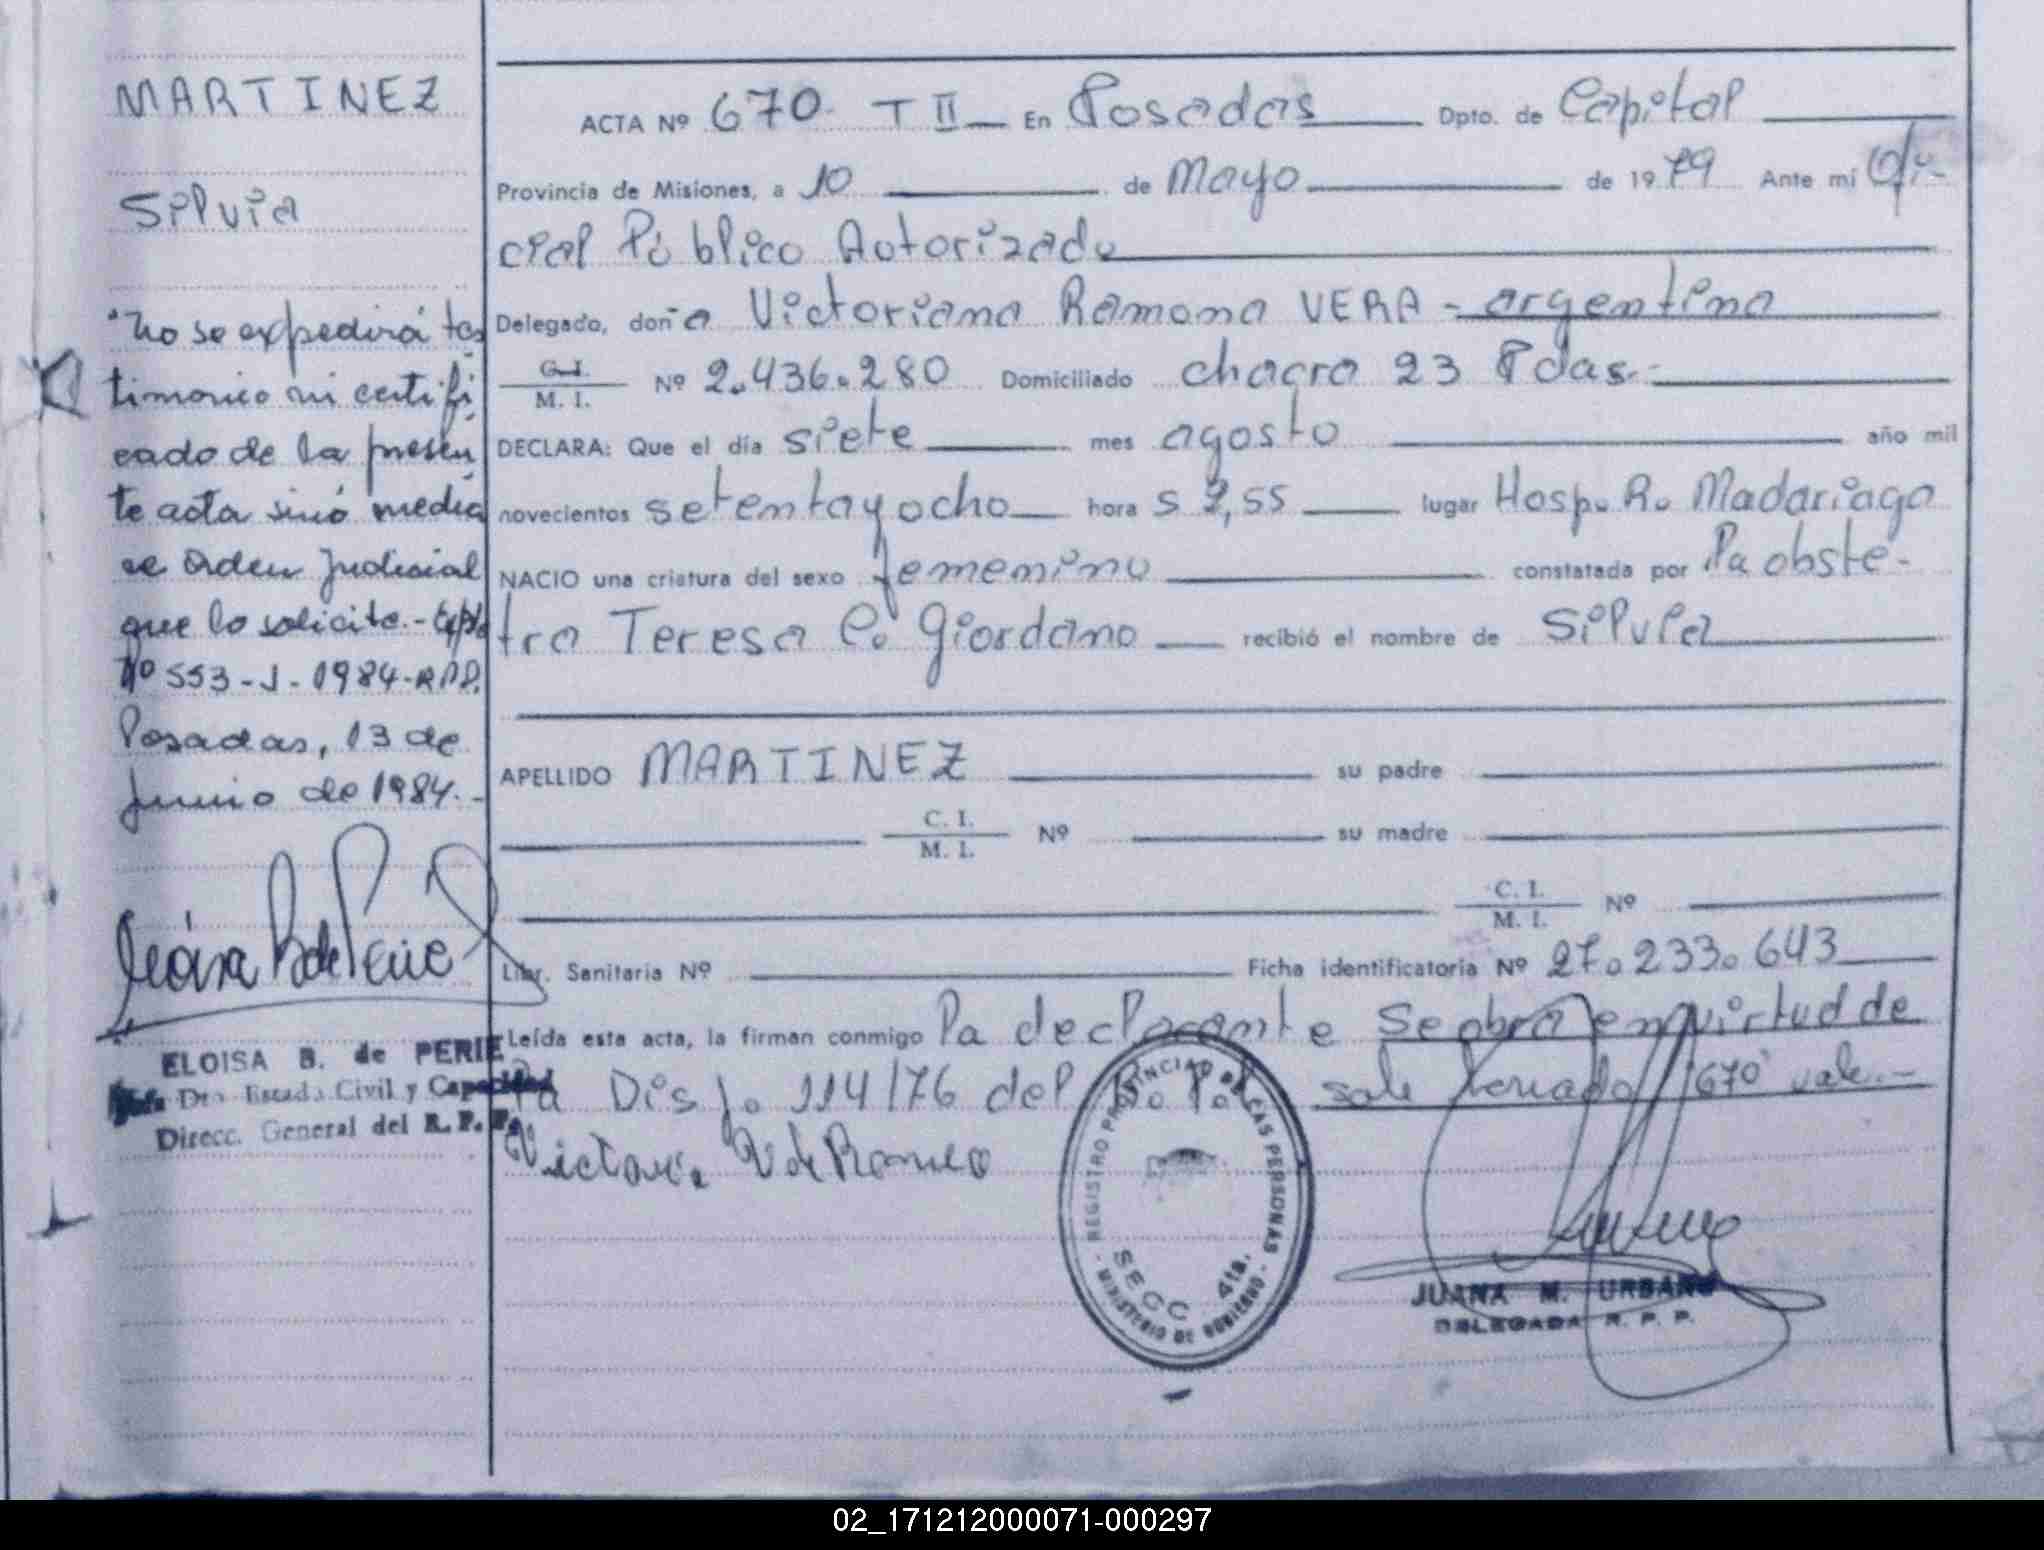 MARTINEZ
Silvia
"No se expedirá tes
timonio ni certifi
cado de la presen
te acta sinó media
te Orden Judicial
que lo solicite.- Expte
Nº 553-J-1984-R.P.P.
Posadas, 13 de
Junio de 1984.-
ELOISA B. de PERIE
Dto Estado Civil y Capacidad
Direcc. General del R. P. P.
ACTA Nº 670 T II En Posadas Dpto. de Capital
Provincia de Misiones, a 10 de Mayo de 1979 Ante mí Ofi-
cial Público Autorizado
Delegado, doña Victoriana Ramona VERA - argentina
C. I. / M. I. Nº 2.436.280 Domiciliado chacra 23 Pdas.-
DECLARA: Que el día siete mes agosto año mil
novecientos setentayocho hora s 2,55 lugar Hosp. R. Madariaga
NACIO una criatura del sexo femenino constatada por la obste-
tra Teresa C. Giordano recibió el nombre de Silvia
APELLIDO MARTINEZ su padre
C. I. / M. I. Nº su madre
C. I. / M. I. Nº
Libr. Sanitaria Nº Ficha identificatoria Nº 27.233.643
Leída esta acta, la firman conmigo la declarante se obra en virtud de
la Disp. 114/76 del R.P.P. sobre 670 vale.-
REGISTRO PROVINCIAL DE LAS PERSONAS
SECC 4ta.
- MINISTERIO DE GOBIERNO -
JUANA M. URBANO
DELEGADA R. P. P.
02_171212000071-000297